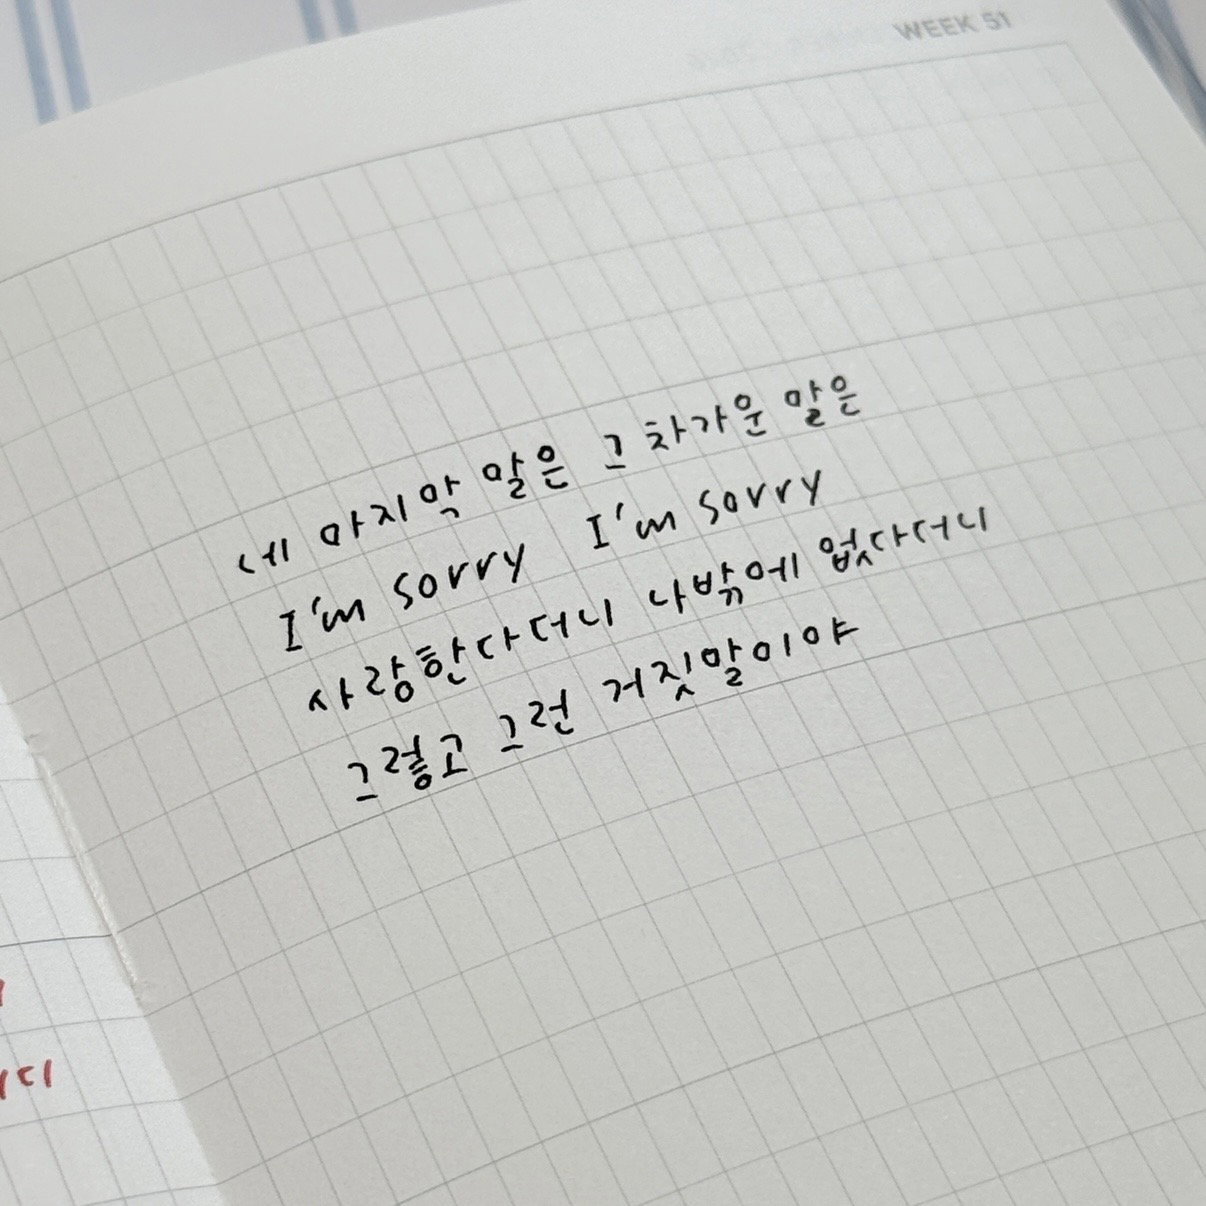 WEEK 51
네 마지막 말은 그 차가운 말은
I'm sorry I'm sorry
사랑한다더니 나밖에 없다더니
그렇고 그런 거짓말이야